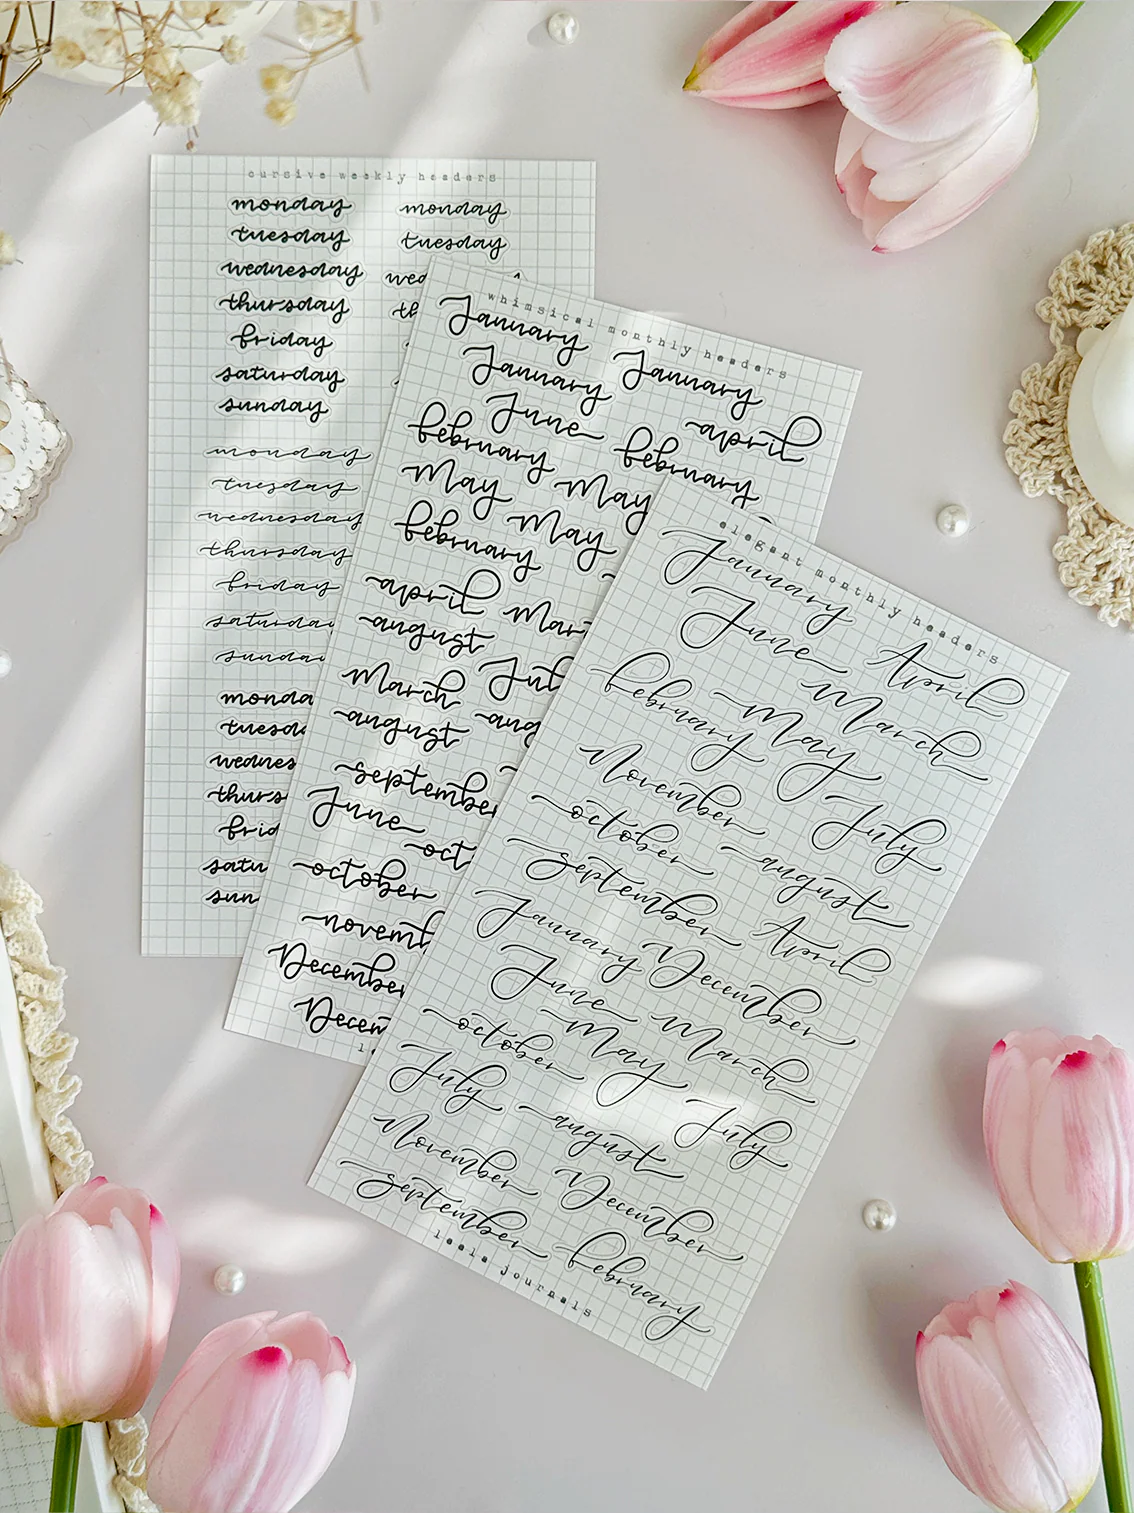 cursive weekly headers
monday monday
tuesday tuesday
wednesday wed
thursday th
friday
saturday
sunday
monday
tuesday
wednesday
thursday
friday
saturday
sunday
monda
tuesd
wednes
thurs
frid
satu
sun
whimsical monthly headers
January
January January
June april
february february
May May
february May
april Mar
august
March Jul
august aug
september
June oct
october
novemb
December
Decem
elegant monthly headers
January
June April
february March
May
November July
october august
september April
January December
June March
october May
July august July
November December
september february
leela journals